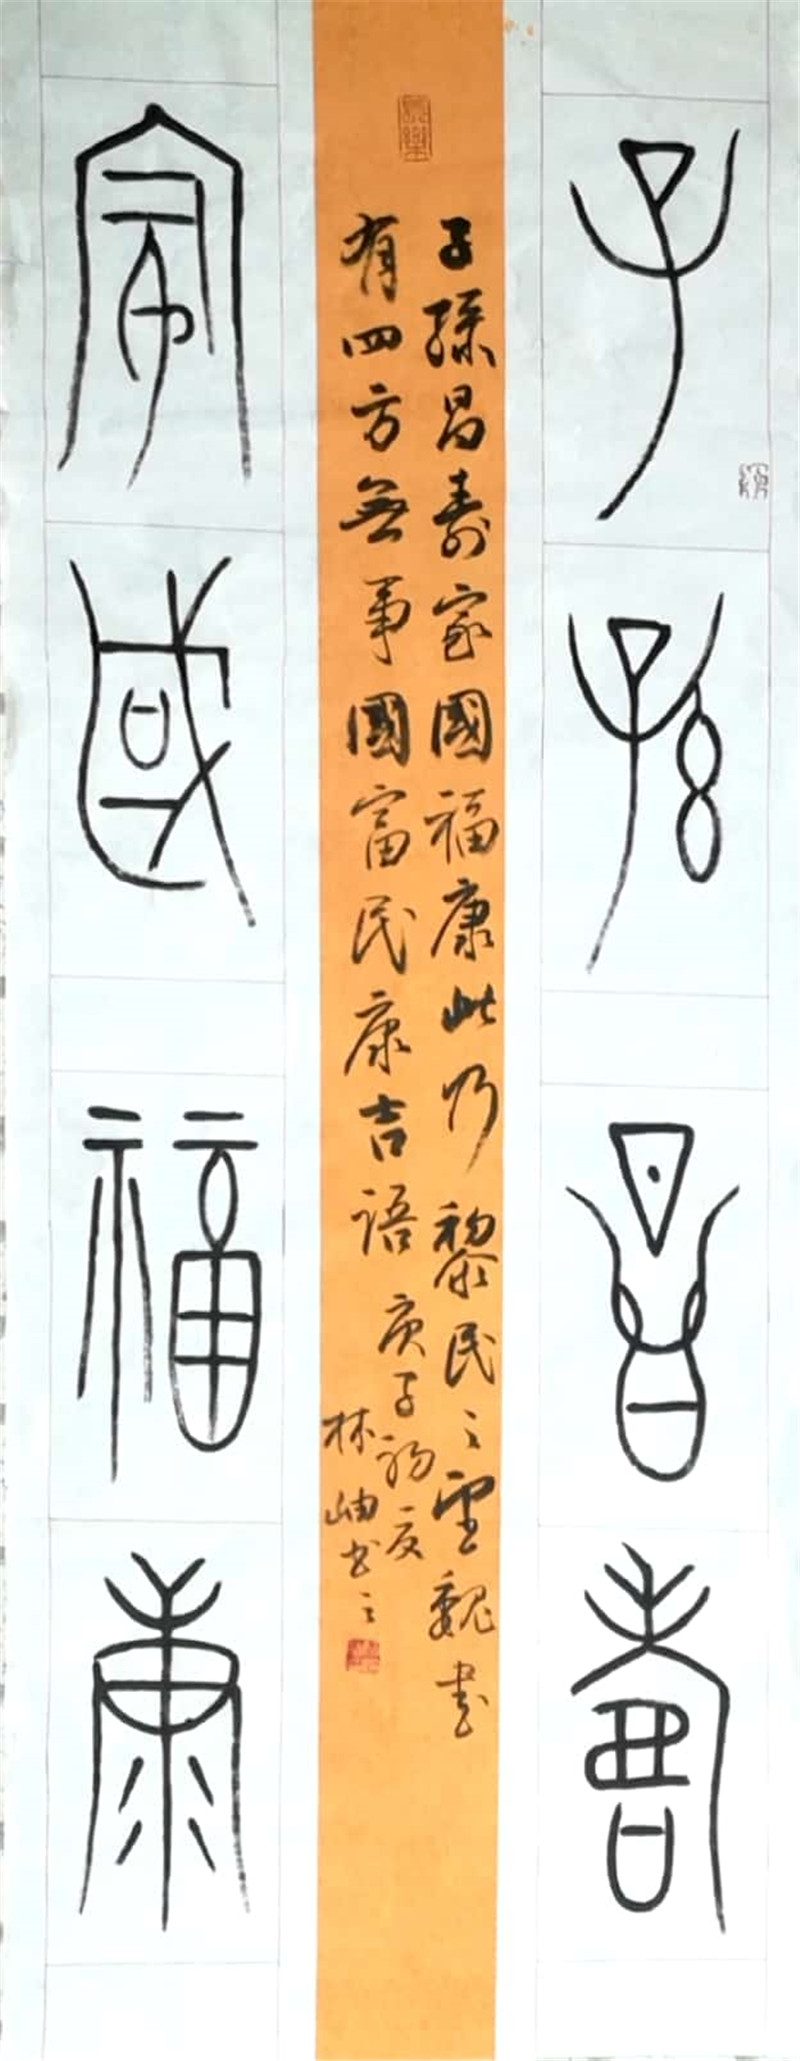 子孫昌壽
子孫昌壽家國福康此乃黎民之望魏書
有四方無事國富民康吉語
庚子初夏
林岫书之
家國福康